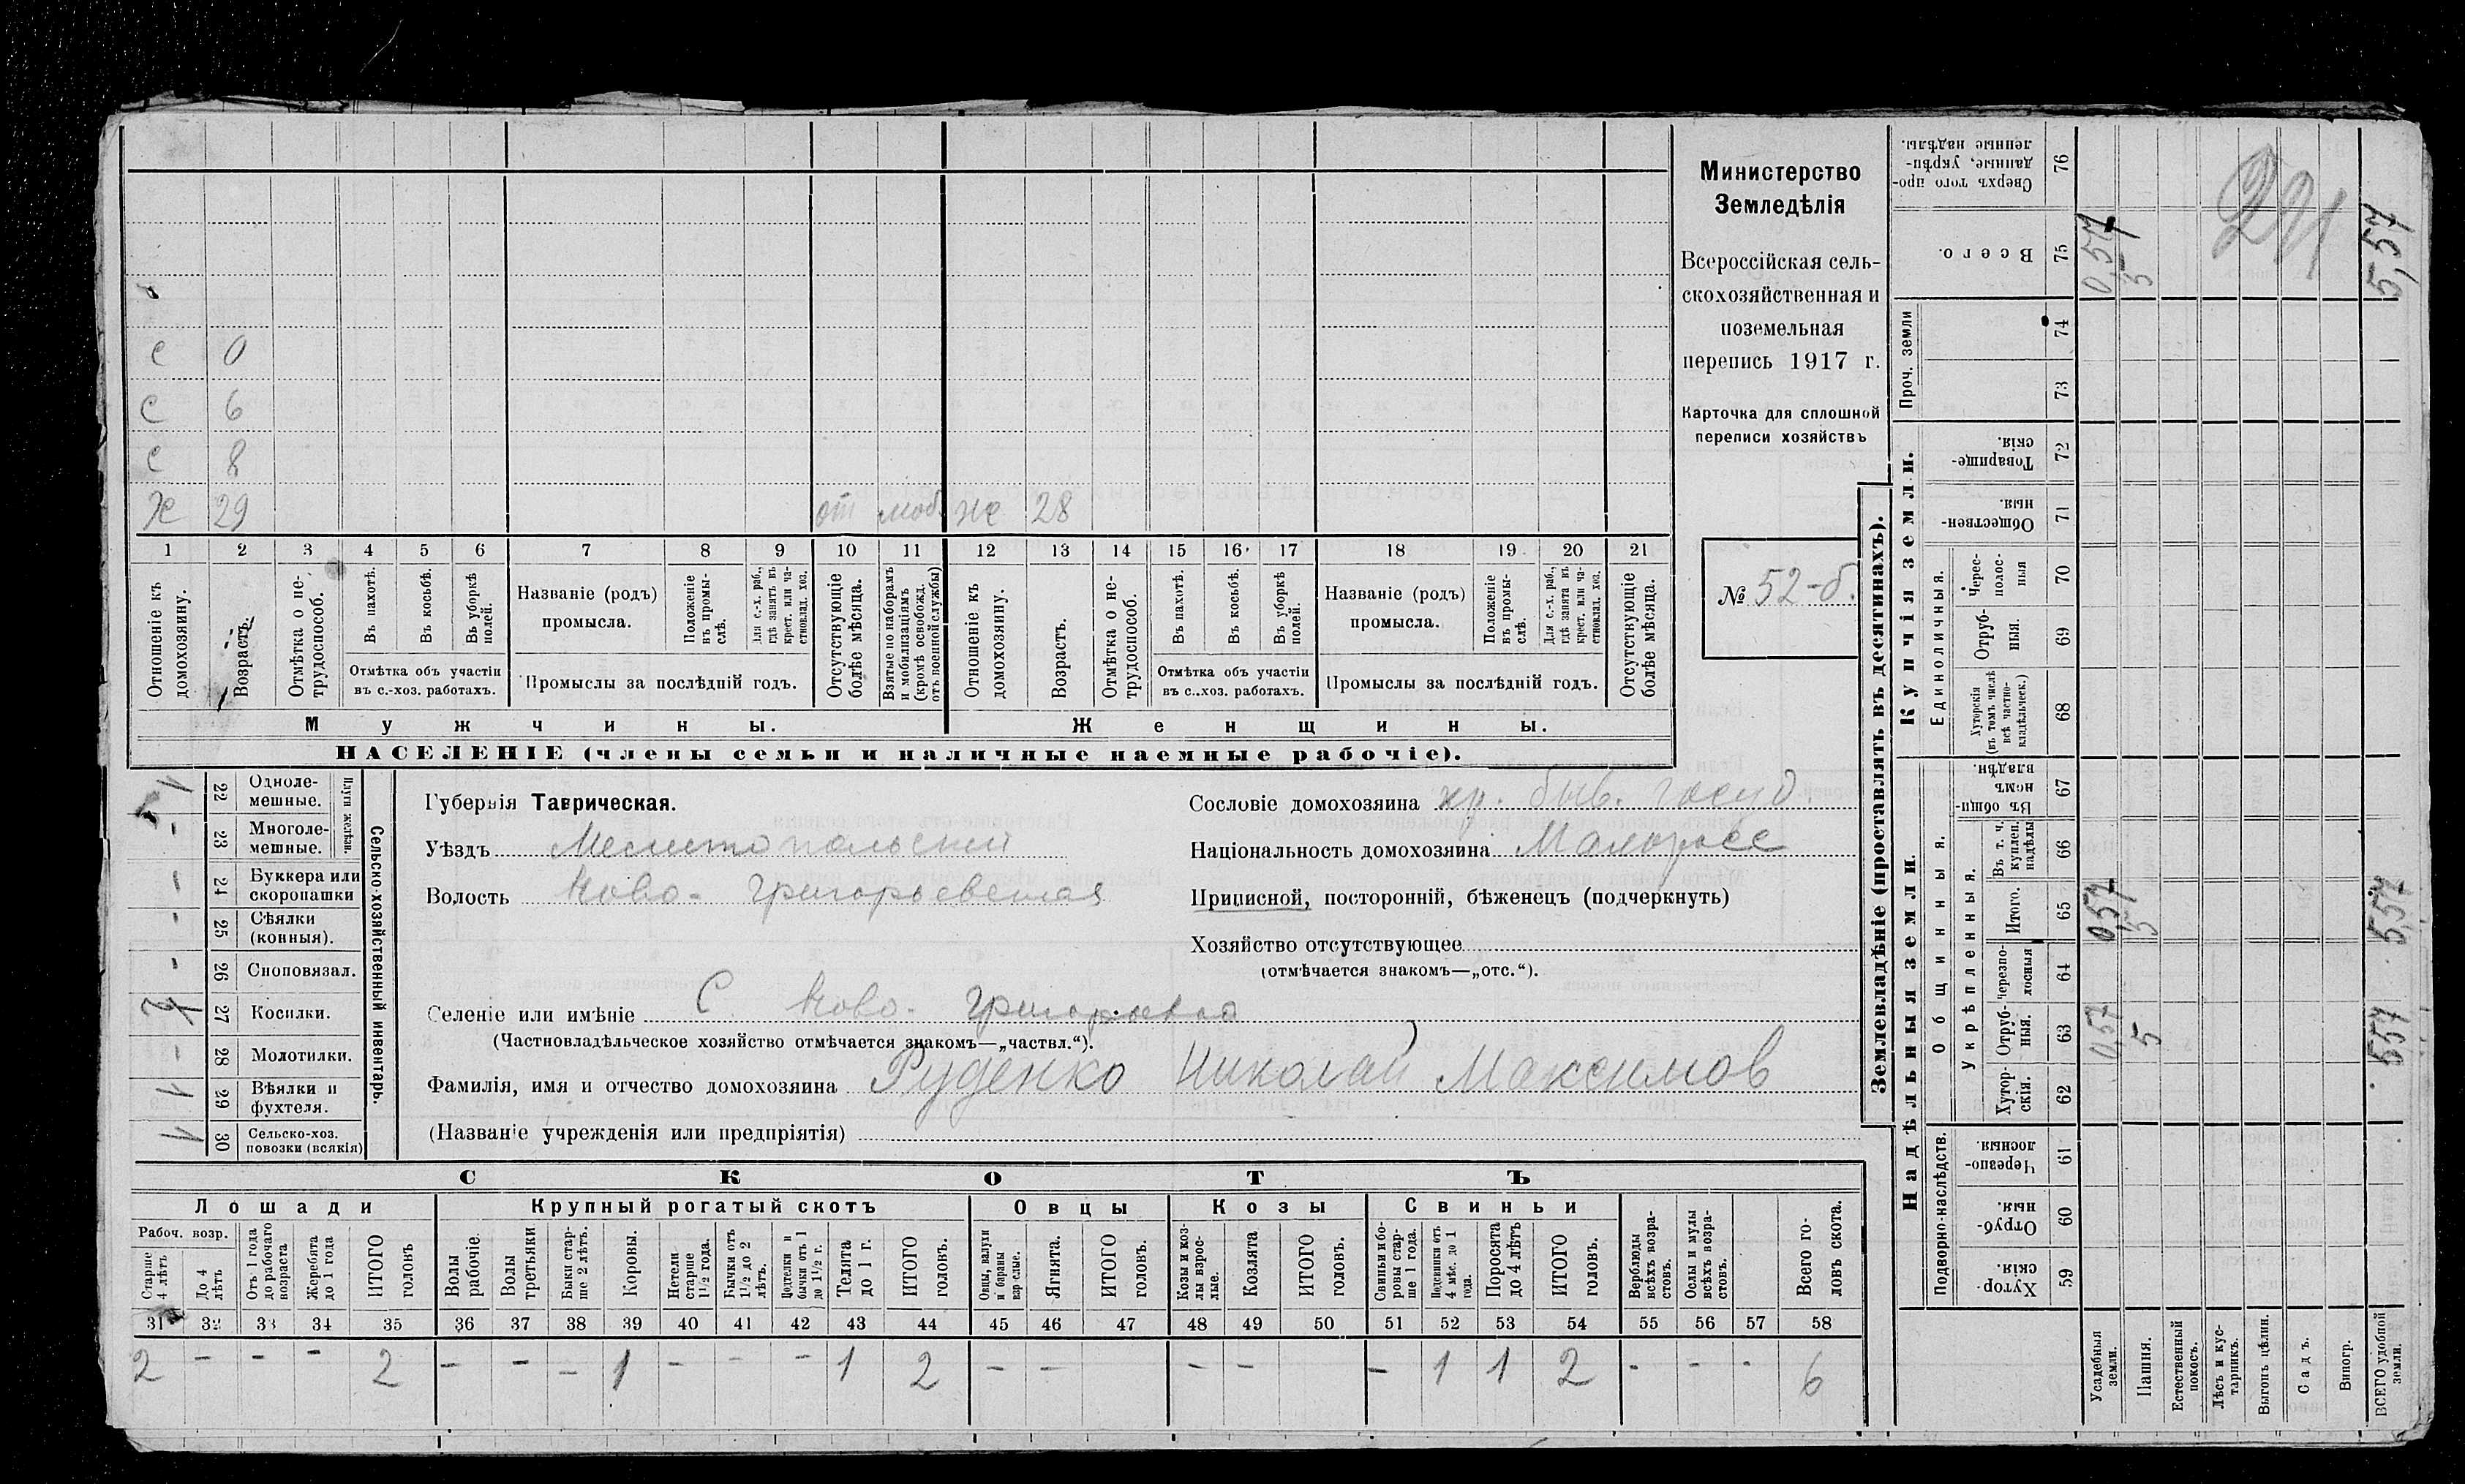 Министерство
Земледѣлія
Всероссійская сель-
скохозяйственная и
поземельная
перепись 1917 г.
Карточка для сплошной
переписи хозяйствъ
№ 52-б.
с 0
с 6
с 8
Х 29 от моб. же 28
1 2 3 4 5 6 7 8 9 10 11 12 13 14 15 16 17 18 19 20 21
Отношеніе къ домохозяину.
Возрастъ.
Отмѣтка о не-трудоспособ.
Въ пахотѣ.
Въ косьбѣ.
Въ уборкѣ полей.
Отмѣтка объ участіи въ с.-хоз. работахъ.
Названіе (родъ) промысла.
Положеніе въ промы-слѣ.
Для с.-х. раб., гдѣ занятъ въ крест. или ча-стновлад. хоз.
Промыслы за послѣдній годъ.
Отсутствующіе болѣе мѣсяца.
Взятые по наборамъ и мобилизаціямъ (кромѣ освобожд. отъ военной службы)
Отношеніе къ домохозяину.
Возрастъ.
Отмѣтка о не-трудоспособ.
Въ пахотѣ.
Въ косьбѣ.
Въ уборкѣ полей.
Отмѣтка объ участіи въ с..хоз. работахъ.
Названіе (родъ) промысла.
Положеніе въ промы-слѣ.
Для с.-х. раб., гдѣ занята въ крест. или ча-стновлад. хоз.
Промыслы за послѣдній годъ.
Отсутствующіе болѣе мѣсяца.
Мужчины.
Женщины.
НАСЕЛЕНІЕ (члены семьи и наличные наемные рабочіе).
Сельско-хозяйственный инвентарь.
Плуги желѣзн.
22 Одноле-мешные. 1
23 Многоле-мешные. -
24 Буккера или скоропашки -
25 Сѣялки (конныя). -
26 Сноповязал. -
27 Косилки.
28 Молотилки. -
29 Вѣялки и фухтеля. 1
30 Сельско-хоз. повозки (всякія) 1
Губернія Таврическая.
Уѣздъ Мелитопольскій
Волость Ново-Григорьевская
Селеніе или имѣніе С. Ново-Григорьевка
(Частновладѣльческое хозяйство отмѣчается знакомъ—„частвл.“).
Фамилія, имя и отчество домохозяина Руденко Николай Максимов
(Названіе учрежденія или предпріятія)
Сословіе домохозяина кр. быв. госуд.
Національность домохозяина Малоросс
Приписной, посторонній, бѣженецъ (подчеркнуть)
Хозяйство отсутствующее
(отмѣчается знакомъ—„отс.“).
СКОТЪ
Лошади
Крупный рогатый скотъ
Овцы
Козы
Свиньи
Рабоч. возр.
Старше 4 лѣтъ
До 4 лѣтъ
Отъ 1 года до рабочаго возраста
Жеребята до 1 года
ИТОГО головъ
Волы рабочіе.
Волы третьяки
Быки стар-ше 2 лѣтъ.
Коровы.
Нетели старше 1½ года.
Бычки отъ 1½ до 2 лѣтъ.
Подтелки и бычки отъ 1 до 1½ г.
Телята до 1 г.
ИТОГО головъ.
Овцы, валухи и бараны взрослые.
Ягнята.
ИТОГО головъ.
Козы и коз-лы взрос-лые.
Козлята
ИТОГО головъ.
Свиньи и бо-ровы стар-ше 1 года.
Подсвинки отъ 4 мѣс. до 1 года.
Поросята до 4 лѣтъ
ИТОГО головъ.
Верблюды всѣхъ возра-стовъ.
Ослы и мулы всѣхъ возра-стовъ.
Всего го-ловъ скота.
31 32 33 34 35 36 37 38 39 40 41 42 43 44 45 46 47 48 49 50 51 52 53 54 55 56 57 58
2 - - - 2 - - - 1 - - - 1 2 - - - - - 1 1 2 - - - 6
Землевладѣніе (проставлять въ десятинахъ).
Надѣльныя земли.
Купчія земли.
Проч. земли
Подворно-наслѣдств.
Общинныя.
Укрѣпленныя.
Единоличныя.
Хутор-скія. 59
Отруб-ныя. 60
Черезпо-лосныя. 61
Хутор-скія. 62
Отруб-ныя. 63
Черезпо-лосныя 64
Итого. 65
Въ т. ч. куплен. надѣлы 66
Въ общи-номъ владѣн. 67
Хуторскія (въ томъ числѣ всѣ частно-владѣльческ.) 68
Отруб-ныя. 69
Черес-полос-ныя 70
Обществен-ныя. 71
Товарище-скія. 72
73
74
Всего. 75
Сверхъ того про-данные, укрѣп-ленные надѣлы. 76
Усадебныя земли. 0,57 0,57 0,57
Пашня. 5 5 5
Естественный покосъ.
Лѣсъ и кус-тарникъ.
Выгонъ цѣлин.
Садъ.
Виногр.
ВСЕГО удобной земли. 5,57 5,57 5,57
291